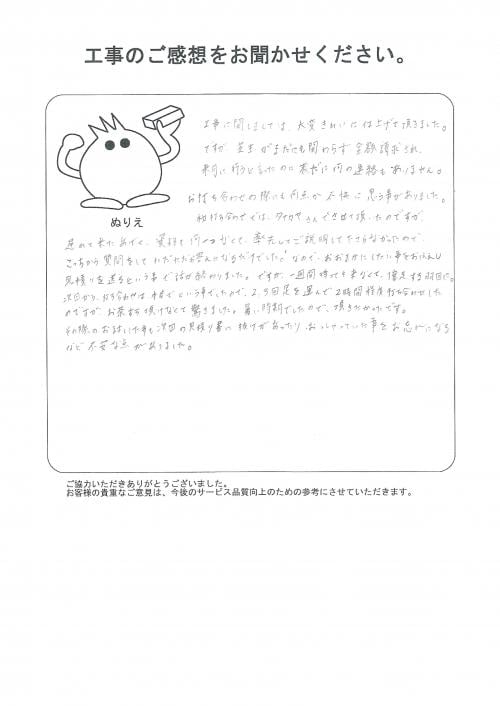 工事のご感想をお聞かせください。
工事に関しましては、大変きれいに仕上げて頂きました。
ですが、芝生がまだにも関わらず全額請求され、
来月に行うと言ったのに未だに何の連絡もありません。
お打ち合わせの際にも何点か不快に思う事がありました。
初打ち合わせでは、さんでさせて頂いたのですが、
ぬりえ
進めて来たあげく、資料も何一つなくて、率先してご説明して下さらなかったので、
こっちから質問をして なので、おおまかにしたい事をお伝えし
見積りを送るという事で話が終わりました。ですが、一週間待っても来なくて、催促する羽目に。
次回から、打ち合わせはという事でしたので、2,3回足を運んで2時間程度打ち合わせした
のですが、お茶すら頂けなくて驚きました。暑い時期でしたので、頂きたかったです。
その際のお話した事も次回の見積り書に抜けがあったり、おっしゃっていた事をお忘れになる
など不安な点がありました。
ご協力いただきありがとうございました。
お客様の貴重なご意見は、今後のサービス品質向上のための参考にさせていただきます。